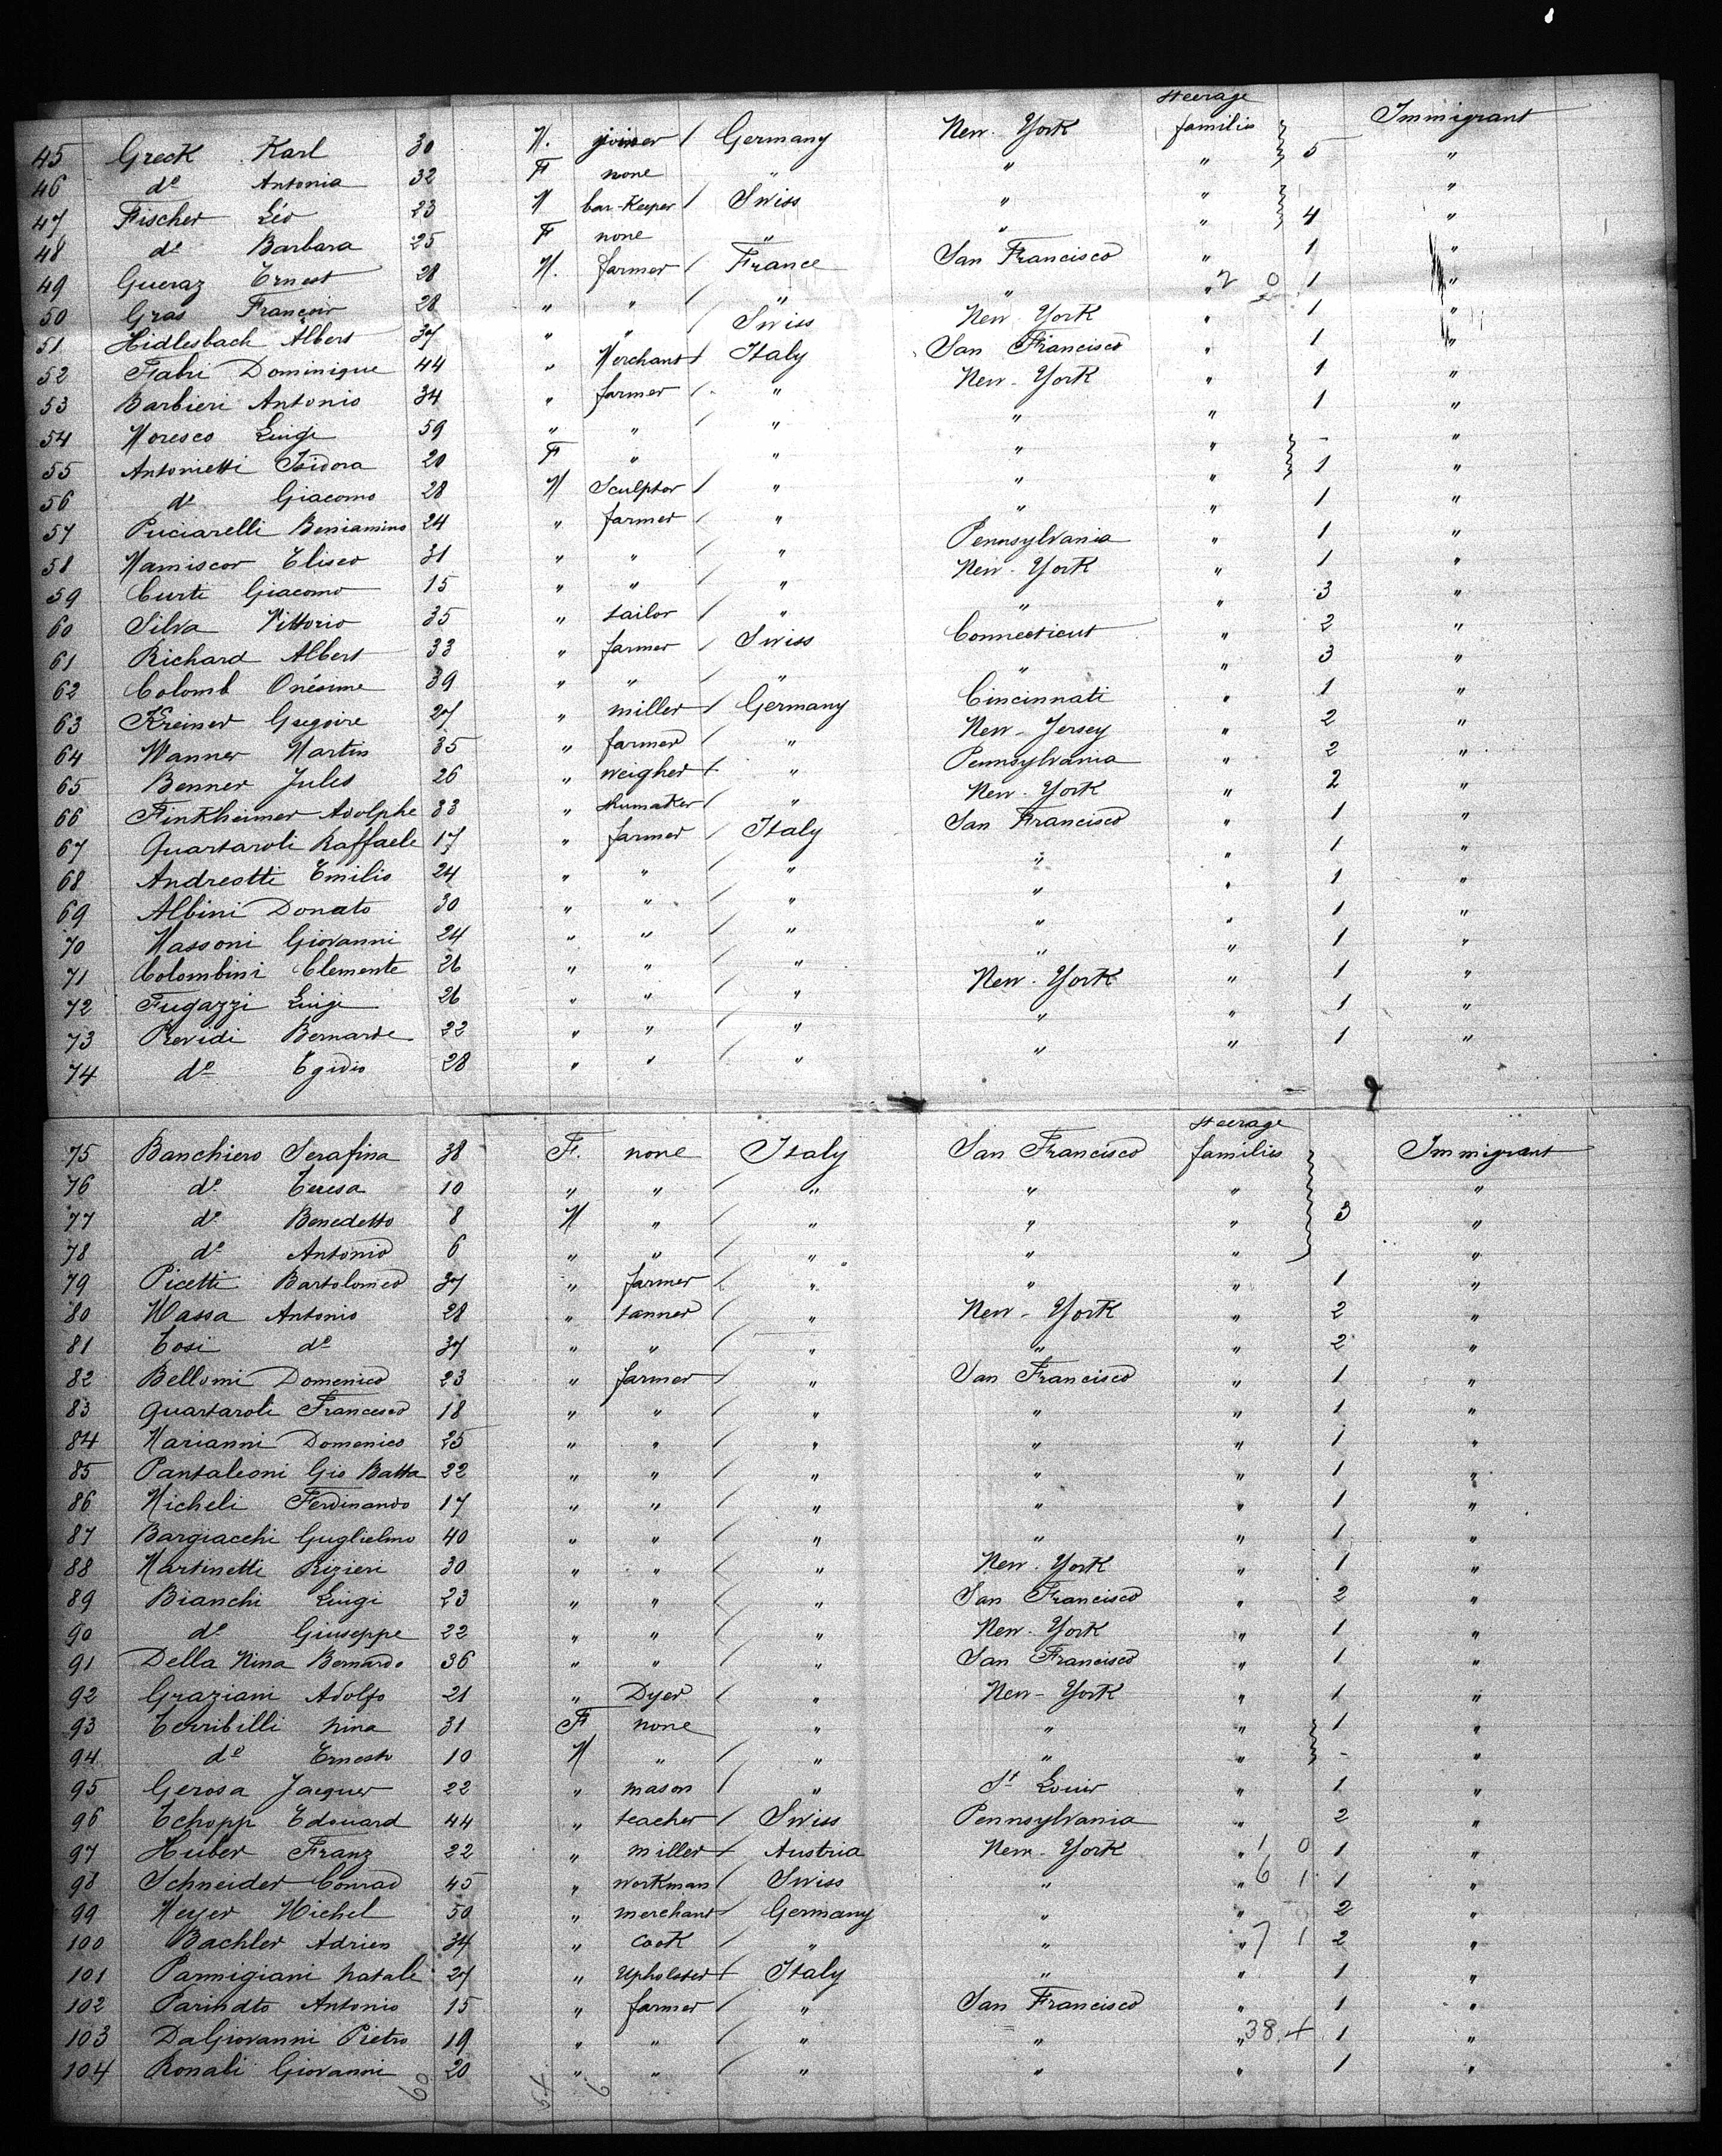 steerage
45 Greck Karl 30 M. joiner / Germany New-York families 5 Immigrant
46 do Antonia 32 F none " " " "
47 Fischer Léo 23 M bar-Keeper / Swiss " " 4 "
48 do Barbara 25 F none " " " "
49 Gueraz Ernest 28 M. farmer / France San Francisco " 1 "
50 Gras François 28 " " / " " " 2 0 1 "
51 Hidlesbach Albert 37 " " / Swiss New-York " 1 "
52 Fabri Dominique 44 " Merchant / Italy San Francisco " 1 "
53 Barbieri Antonio 34 " farmer / " New-York " 1 "
54 Moresco Luigi 59 " " / " " " 1 "
55 Antonietti Isidora 20 F " " " " - "
56 do Giacomo 28 M Sculptor / " " " 1 "
57 Puciarelli Beniamino 24 " farmer / " " " 1 "
58 Eliseo 31 " " / " Pennsylvania " 1 "
59 Curti Giacomo 15 " " / " New-York " 1 "
60 Silva Vittorio 35 " tailor / " " " 3 "
61 Richard Albert 33 " farmer / Swiss Connecticut " 2 "
62 Colomb Onésime 39 " " / " " " 3 "
63 Kreiner Gregoire 27 " miller / Germany Cincinnati " 1 "
64 Wanner Martin 35 " farmer / " New-Jersey " 2 "
65 Benner Jules 26 " weigher / " Pennsylvania " 2 "
66 Finkheimer Adolphe 33 " shumaker / " New-York " 2 "
67 Quartaroli Raffaele 17 " farmer / Italy San Francisco " 1 "
68 Andreotti Emilio 24 " " / " " " 1 "
69 Albini Donato 30 " " / " " " 1 "
70 Massoni Giovanni 24 " " / " " " 1 "
71 Colombini Clemente 26 " " / " " " 1 "
72 Fugazzi Luigi 26 " " / " New-York " 1 "
73 Previdi Bernarde 22 " " / " " " 1 "
74 do Egidio 28 " " / " " " 1 "
9
steerage
75 Banchiero Serafina 38 F. none Italy San Francisco families Immigrant
76 do Teresa 10 " " / " " " "
77 do Benedetto 8 M " / " " " 3 "
78 do Antonio 6 " " / " " " "
79 Picetti Bartolomeo 37 " farmer / " " " 1 "
80 Massa Antonio 28 " tanner / " New-York " 2 "
81 Tosi do 37 " " / " " " 2 "
82 Bellomi Domenico 23 " farmer / " San Francisco " 1 "
83 Quartaroli Francesco 18 " " / " " " 1 "
84 Marianni Domenico 25 " " / " " " 1 "
85 Pantaleoni Gio Batta 22 " " / " " " 1 "
86 Micheli Ferdinando 17 " " / " " " 1 "
87 Bargiacchi Guglielmo 40 " " / " " " 1 "
88 Martinetti Rizieri 30 " " / " New-York " 1 "
89 Bianchi Luigi 23 " " / " San Francisco " 2 "
90 do Giuseppe 22 " " / " New-York " 1 "
91 Della Nina Bernardo 36 " " / " San Francisco " 1 "
92 Graziani Adolfo 21 " Dyer / " New-York " 1 "
93 Terribilli Nina 31 F none " " " 1 "
94 do Ernesto 10 M " / " " " - "
95 Gerosa Jacques 22 " mason / " St Louis " 1 "
96 Tchopp Edouard 44 " teacher / Swiss Pennsylvania " 2 "
97 Huber Franz 22 " miller / Austria New-York " 1 0 1 "
98 Schneider Conrad 45 " workman / Swiss " " 6 1 1 "
99 Meyer Michel 50 " merchant / Germany " " 2 "
100 Bachler Adrien 34 " cook / " " " 7 1 2 "
101 Parmigiani Natale 27 " Upholster / Italy " " 1 "
102 Parindto Antonio 15 " farmer / " San Francisco " 1 "
103 DaGiovanni Pietro 19 " " / " " " 38.4 1 "
104 Ronali Giovanni 20 " " / " " " 1 "
60 54 6